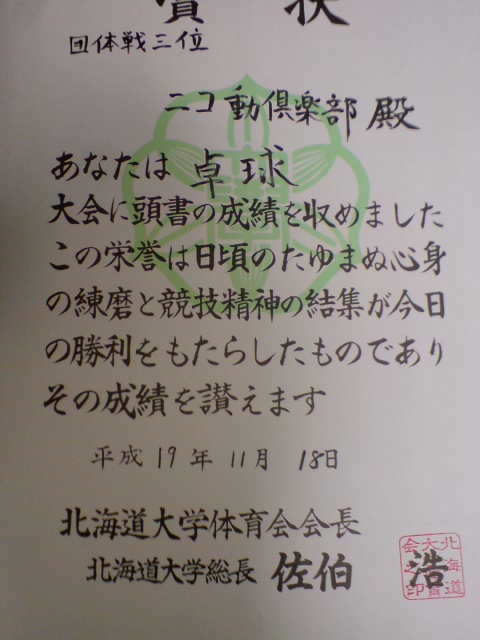 賞状
団体戦三位
ニコ動倶楽部 殿
あなたは 卓球
大会に頭書の成績を収めました
この栄誉は日頃のたゆまぬ心身
の練磨と競技精神の結集が今日
の勝利をもたらしたものであり
その成績を讃えます
平成 19 年 11月 18日
北海道大学体育会会長
北海道大学総長 佐伯 浩